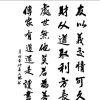 友以義交情可久
財以道取利方長
處世無他莫若為善
傳家有道還是讀書